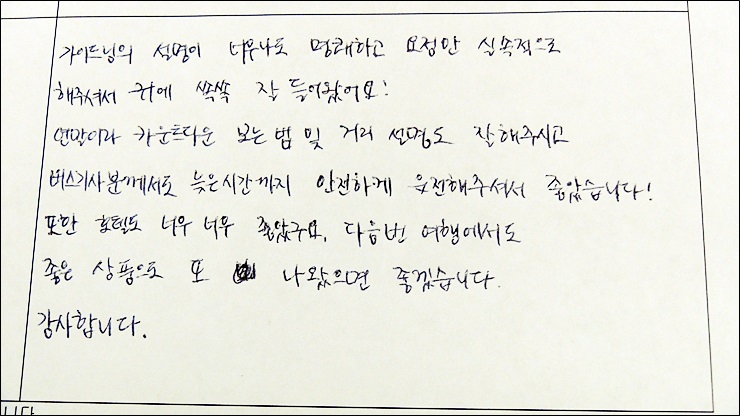 가이드님의 설명이 너무나도 명쾌하고 요점만 실속적으로
해주셔서 귀에 쏙쏙 잘 들어왔어요!
연말이라 카운트다운 보는 법 및 거리 설명도 잘해주시고
버스기사분께서도 늦은시간까지 안전하게 운전해주셔서 좋았습니다!
또한 호텔도 너무 너무 좋았구요, 다음번 여행에서도
좋은 상품으로 또 나왔으면 좋겠습니다.
감사합니다.
니다